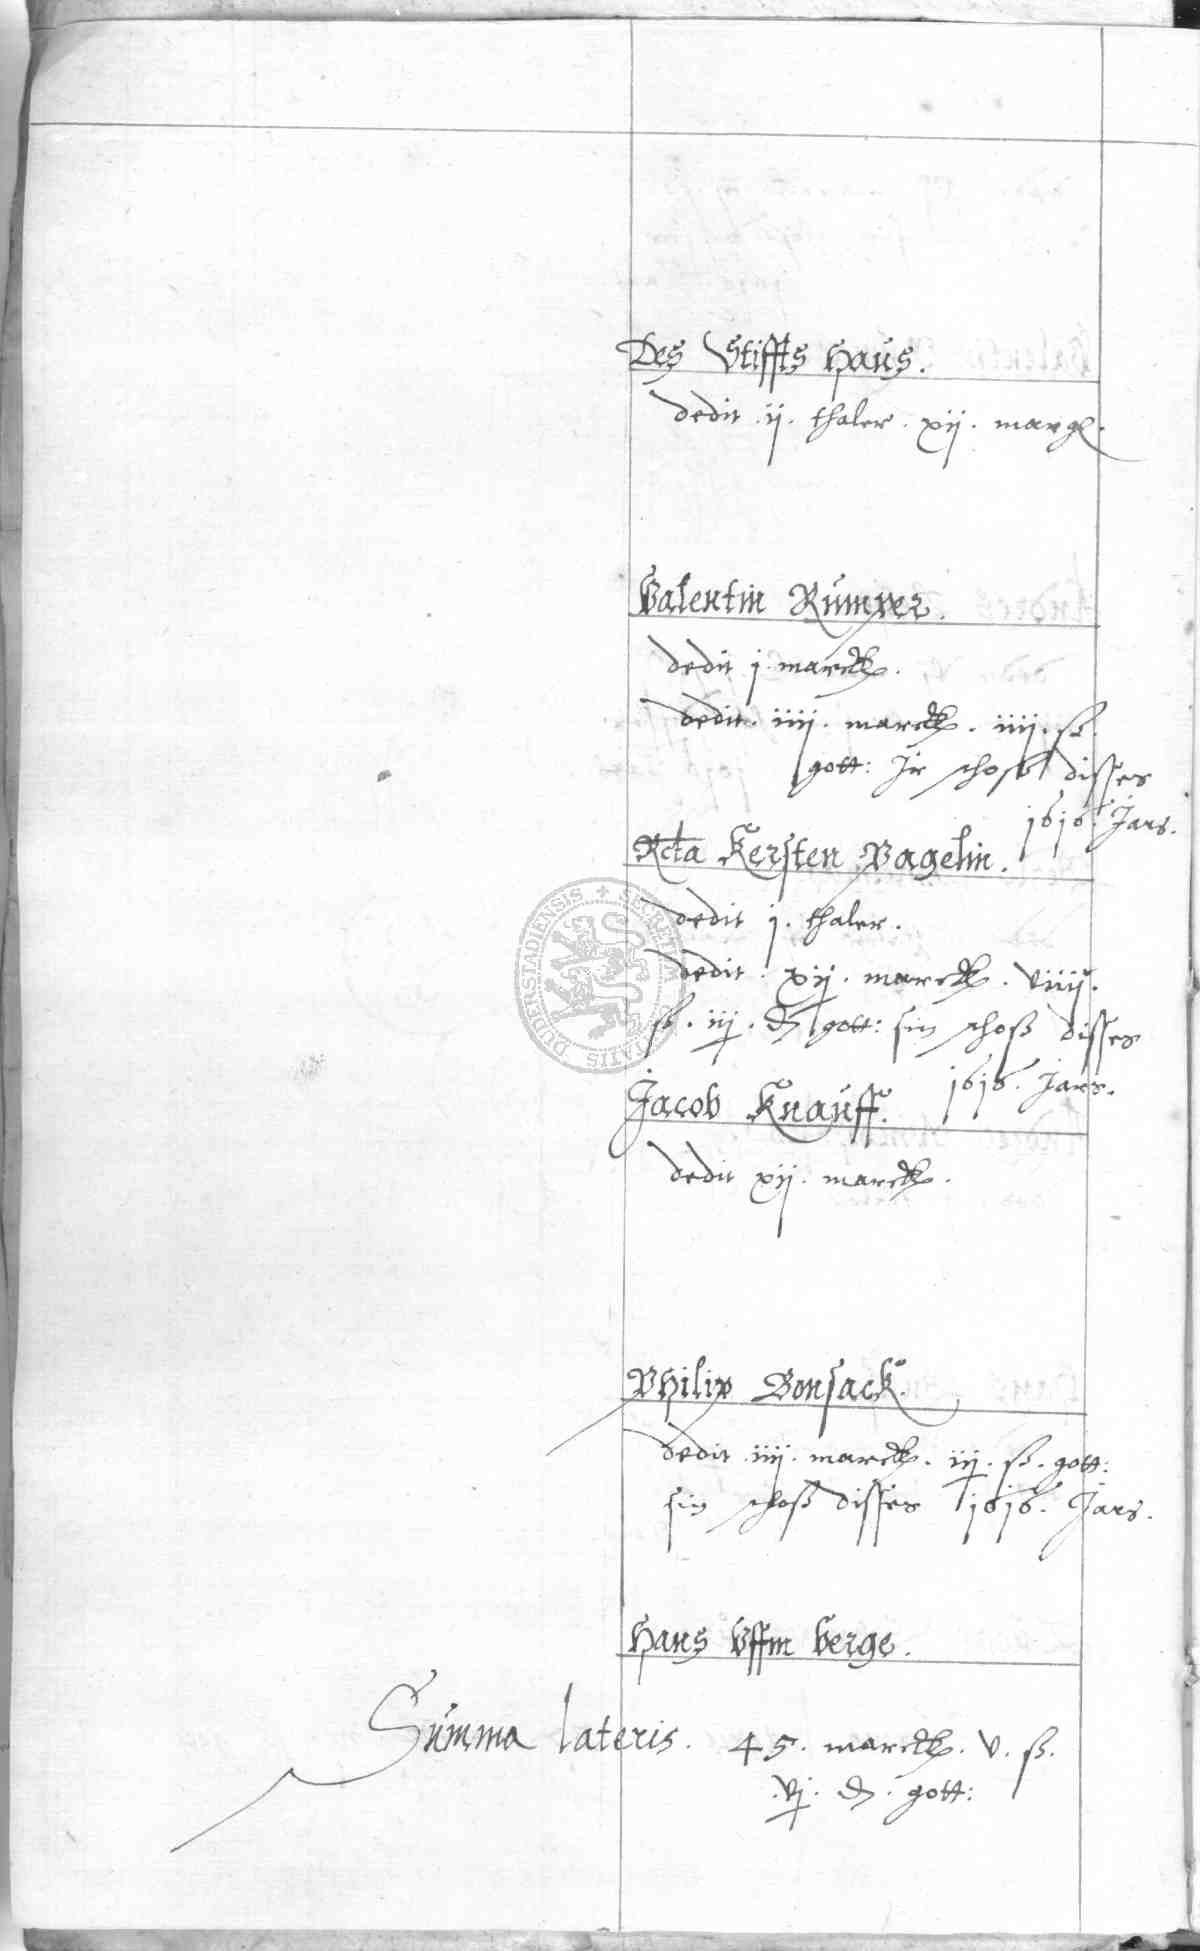 Des Stiffts Haus.
dedit .ij. thaler . xij . margl.
Valentin Rumper.
dedit .j. marck.
dedit . iiij . marck . iiij . ß.
gott: Jr schoß disses
1616. Jars.
Rcta Kersten Vagelin.
dedit j. thaler.
dedit . xij . marck . viiij.
ß . iij . ₰ gott: sin schoß disses
1616. Jars.
Jacob Knauff.
dedit xij . marck .
Philip Bonsack.
dedit . iiij . marck . iij . ß . gott:
sin schoß disses 1616. Jars.
Hans Uffm berge.
Summa lateris. 45 . marck . v . ß.
.vj . ₰ . gott:
SECRETUM CIVITATIS DUDERSTADIENSIS